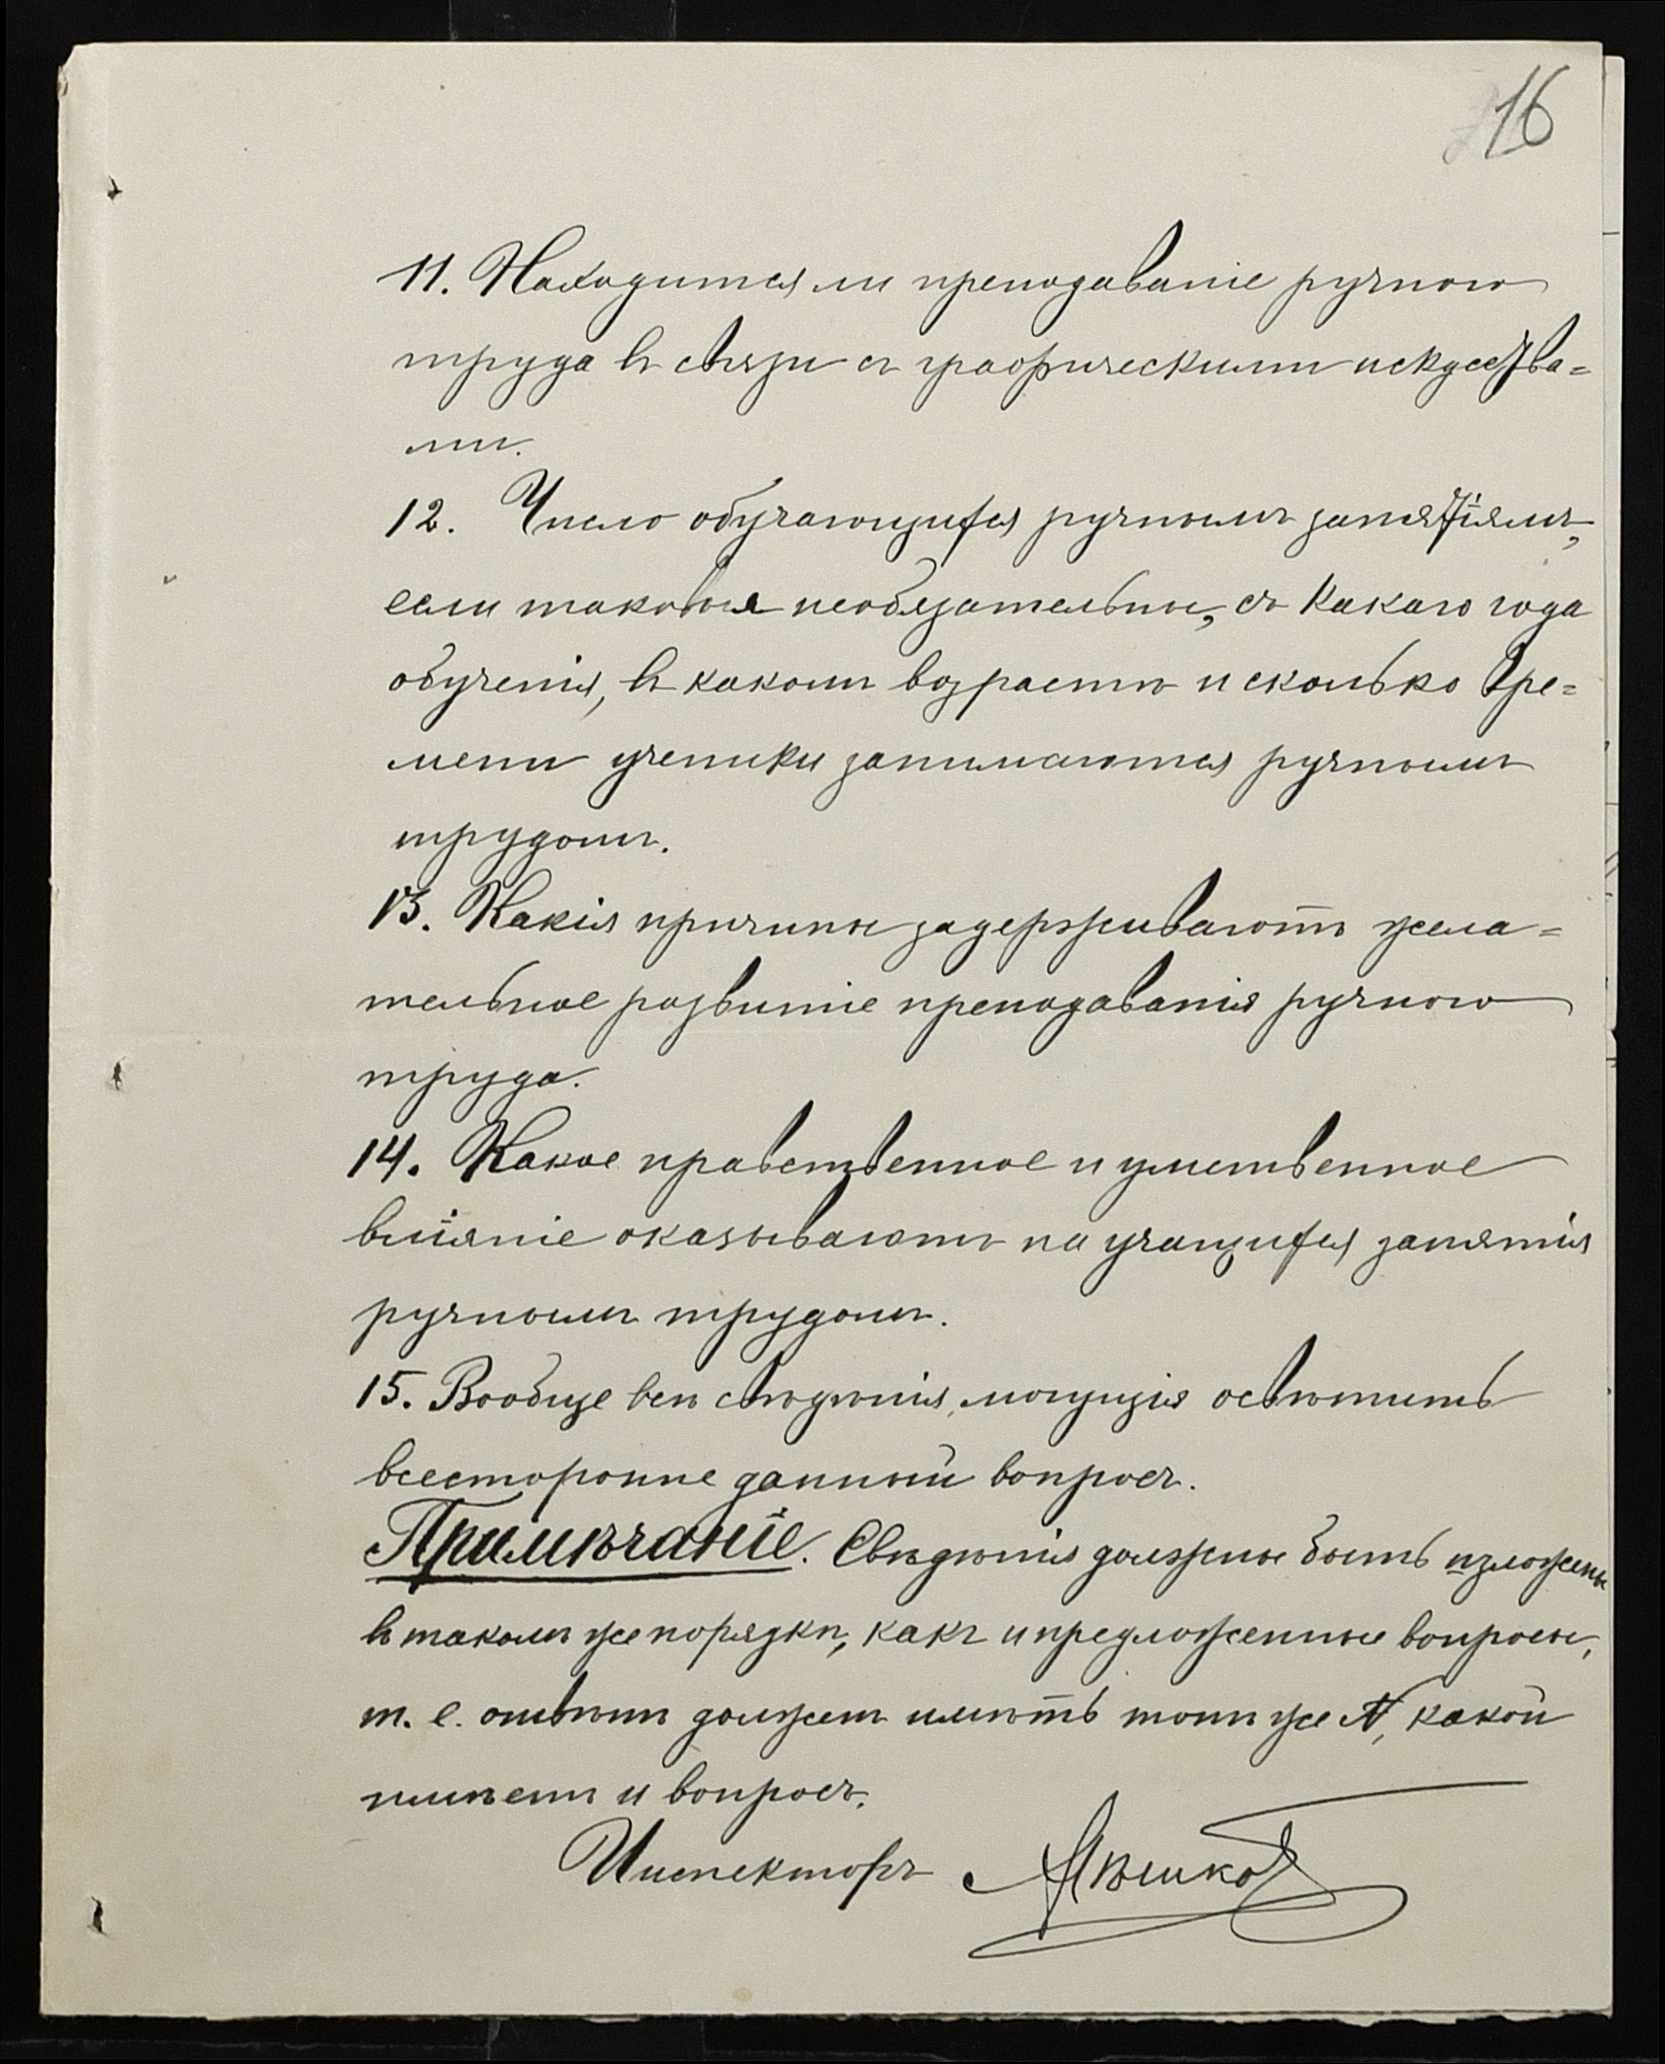 16
11. Находится ли преподаваніе ручного
труда въ связи съ графическими искусства=
ми.
12. Число обучающихся ручнымъ занятіямъ,
если таковыя необязательны, съ какого года
обученія, въ какомъ возрастѣ и сколько вре=
мени ученики занимаются ручнымъ
трудомъ.
13. Какія причины задерживаютъ жела=
тельное развитіе преподаванія ручного
труда.
14. Какое нравственное и умственное
вліяніе оказываютъ на учащихся занятія
ручнымъ трудомъ.
15. Вообще всѣ свѣдѣнія, могущія освѣтить
всесторонне данный вопросъ.
Примѣчаніе. Свѣдѣнія должны быть изложены
въ такомъ же порядкѣ, какъ и предложенные вопросы,
т. е. отвѣтъ долженъ имѣть тотъ же №, какой
имѣетъ и вопросъ.
Инспекторъ